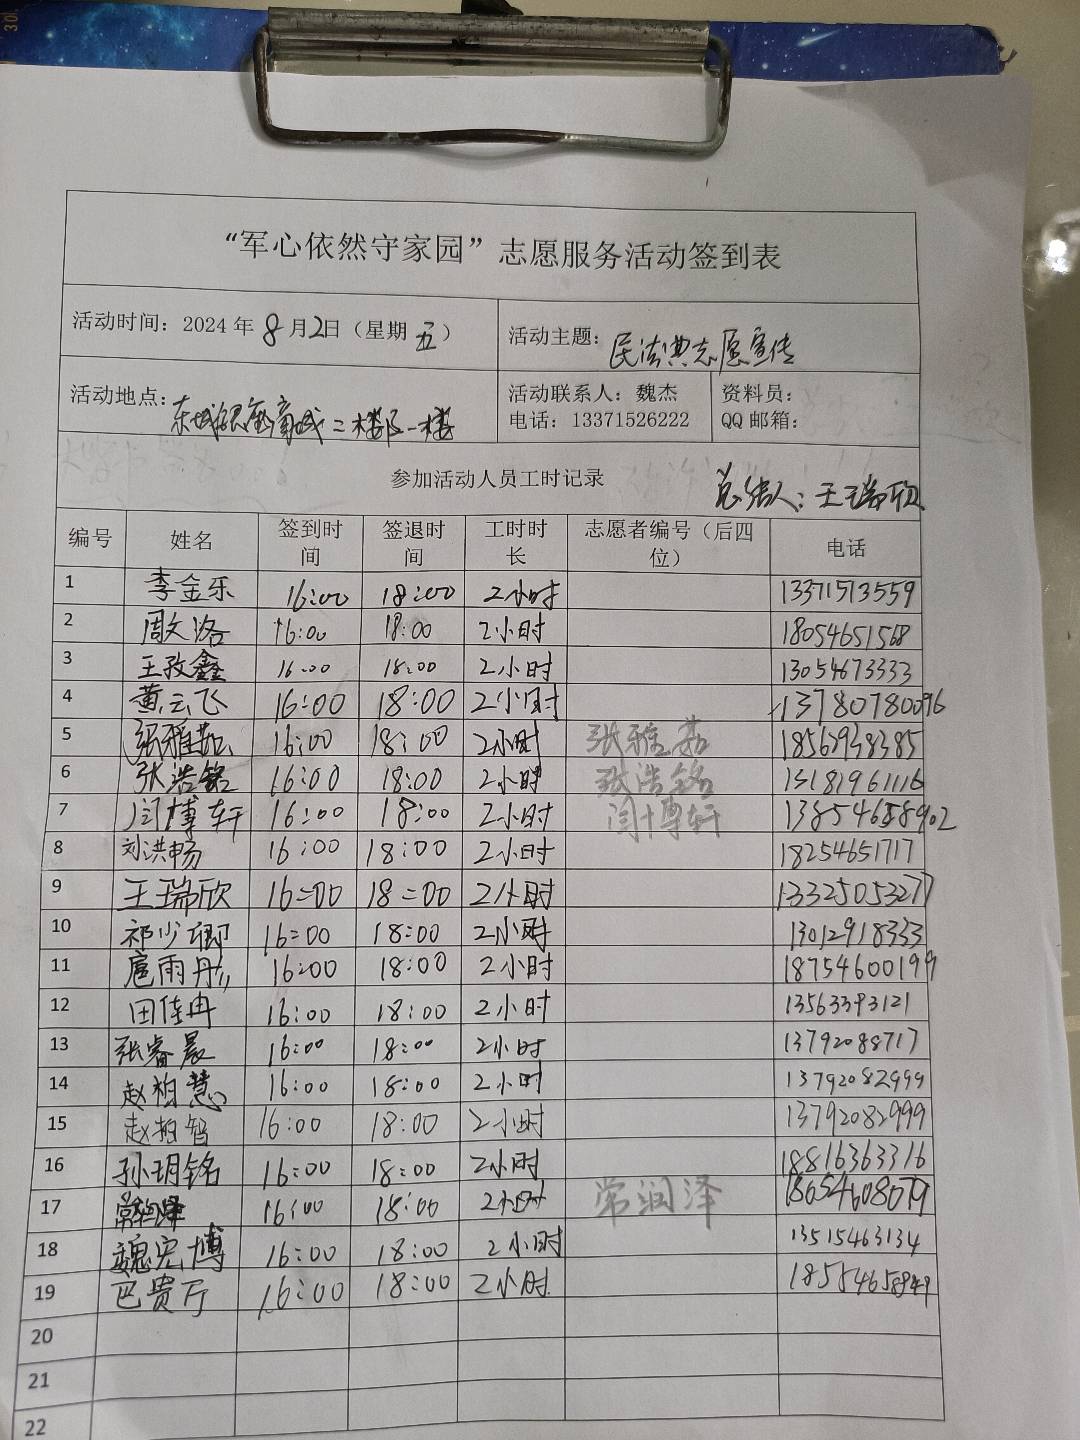 “军心依然守家园”志愿服务活动签到表
活动时间：2024年8月2日（星期五） 活动主题：民法典志愿宣传
活动地点：东城银座商城二楼及一楼 活动联系人：魏杰 资料员：
电话：13371526222 QQ邮箱：
参加活动人员工时记录 总结人：王瑞欣
编号 姓名 签到时间 签退时间 工时时长 志愿者编号（后四位） 电话
1 李金乐 16:00 18:00 2小时 13371573559
2 周文洛 16:00 18:00 2小时 18054651568
3 王孜鑫 16:00 18:00 2小时 13054673333
4 黄云飞 16:00 18:00 2小时 13780780096
5 张雅茹 16:00 18:00 2小时 张雅茹 18562938385
6 张浩铭 16:00 18:00 2小时 张浩铭 13181961116
7 闫博轩 16:00 18:00 2小时 闫博轩 13854658902
8 刘洪畅 16:00 18:00 2小时 18254651717
9 王瑞欣 16=00 18=00 2小时 13325053277
10 祁少卿 16=00 18:00 2小时 13012918333
11 扈雨彤 16:00 18:00 2小时 18754600199
12 田佳冉 16:00 18:00 2小时 13563393121
13 张睿晨 16:00 18:00 2小时 13792088717
14 赵柏慧 16:00 18:00 2小时 13792082999
15 赵柏智 16:00 18:00 2小时 13792082999
16 孙玥铭 16:00 18:00 2小时 18816363316
17 常润泽 16:00 18:00 2小时 常润泽 18654608079
18 魏宏博 16:00 18:00 2小时 13515463134
19 巴贵厅 16:00 18:00 2小时
20
21
22